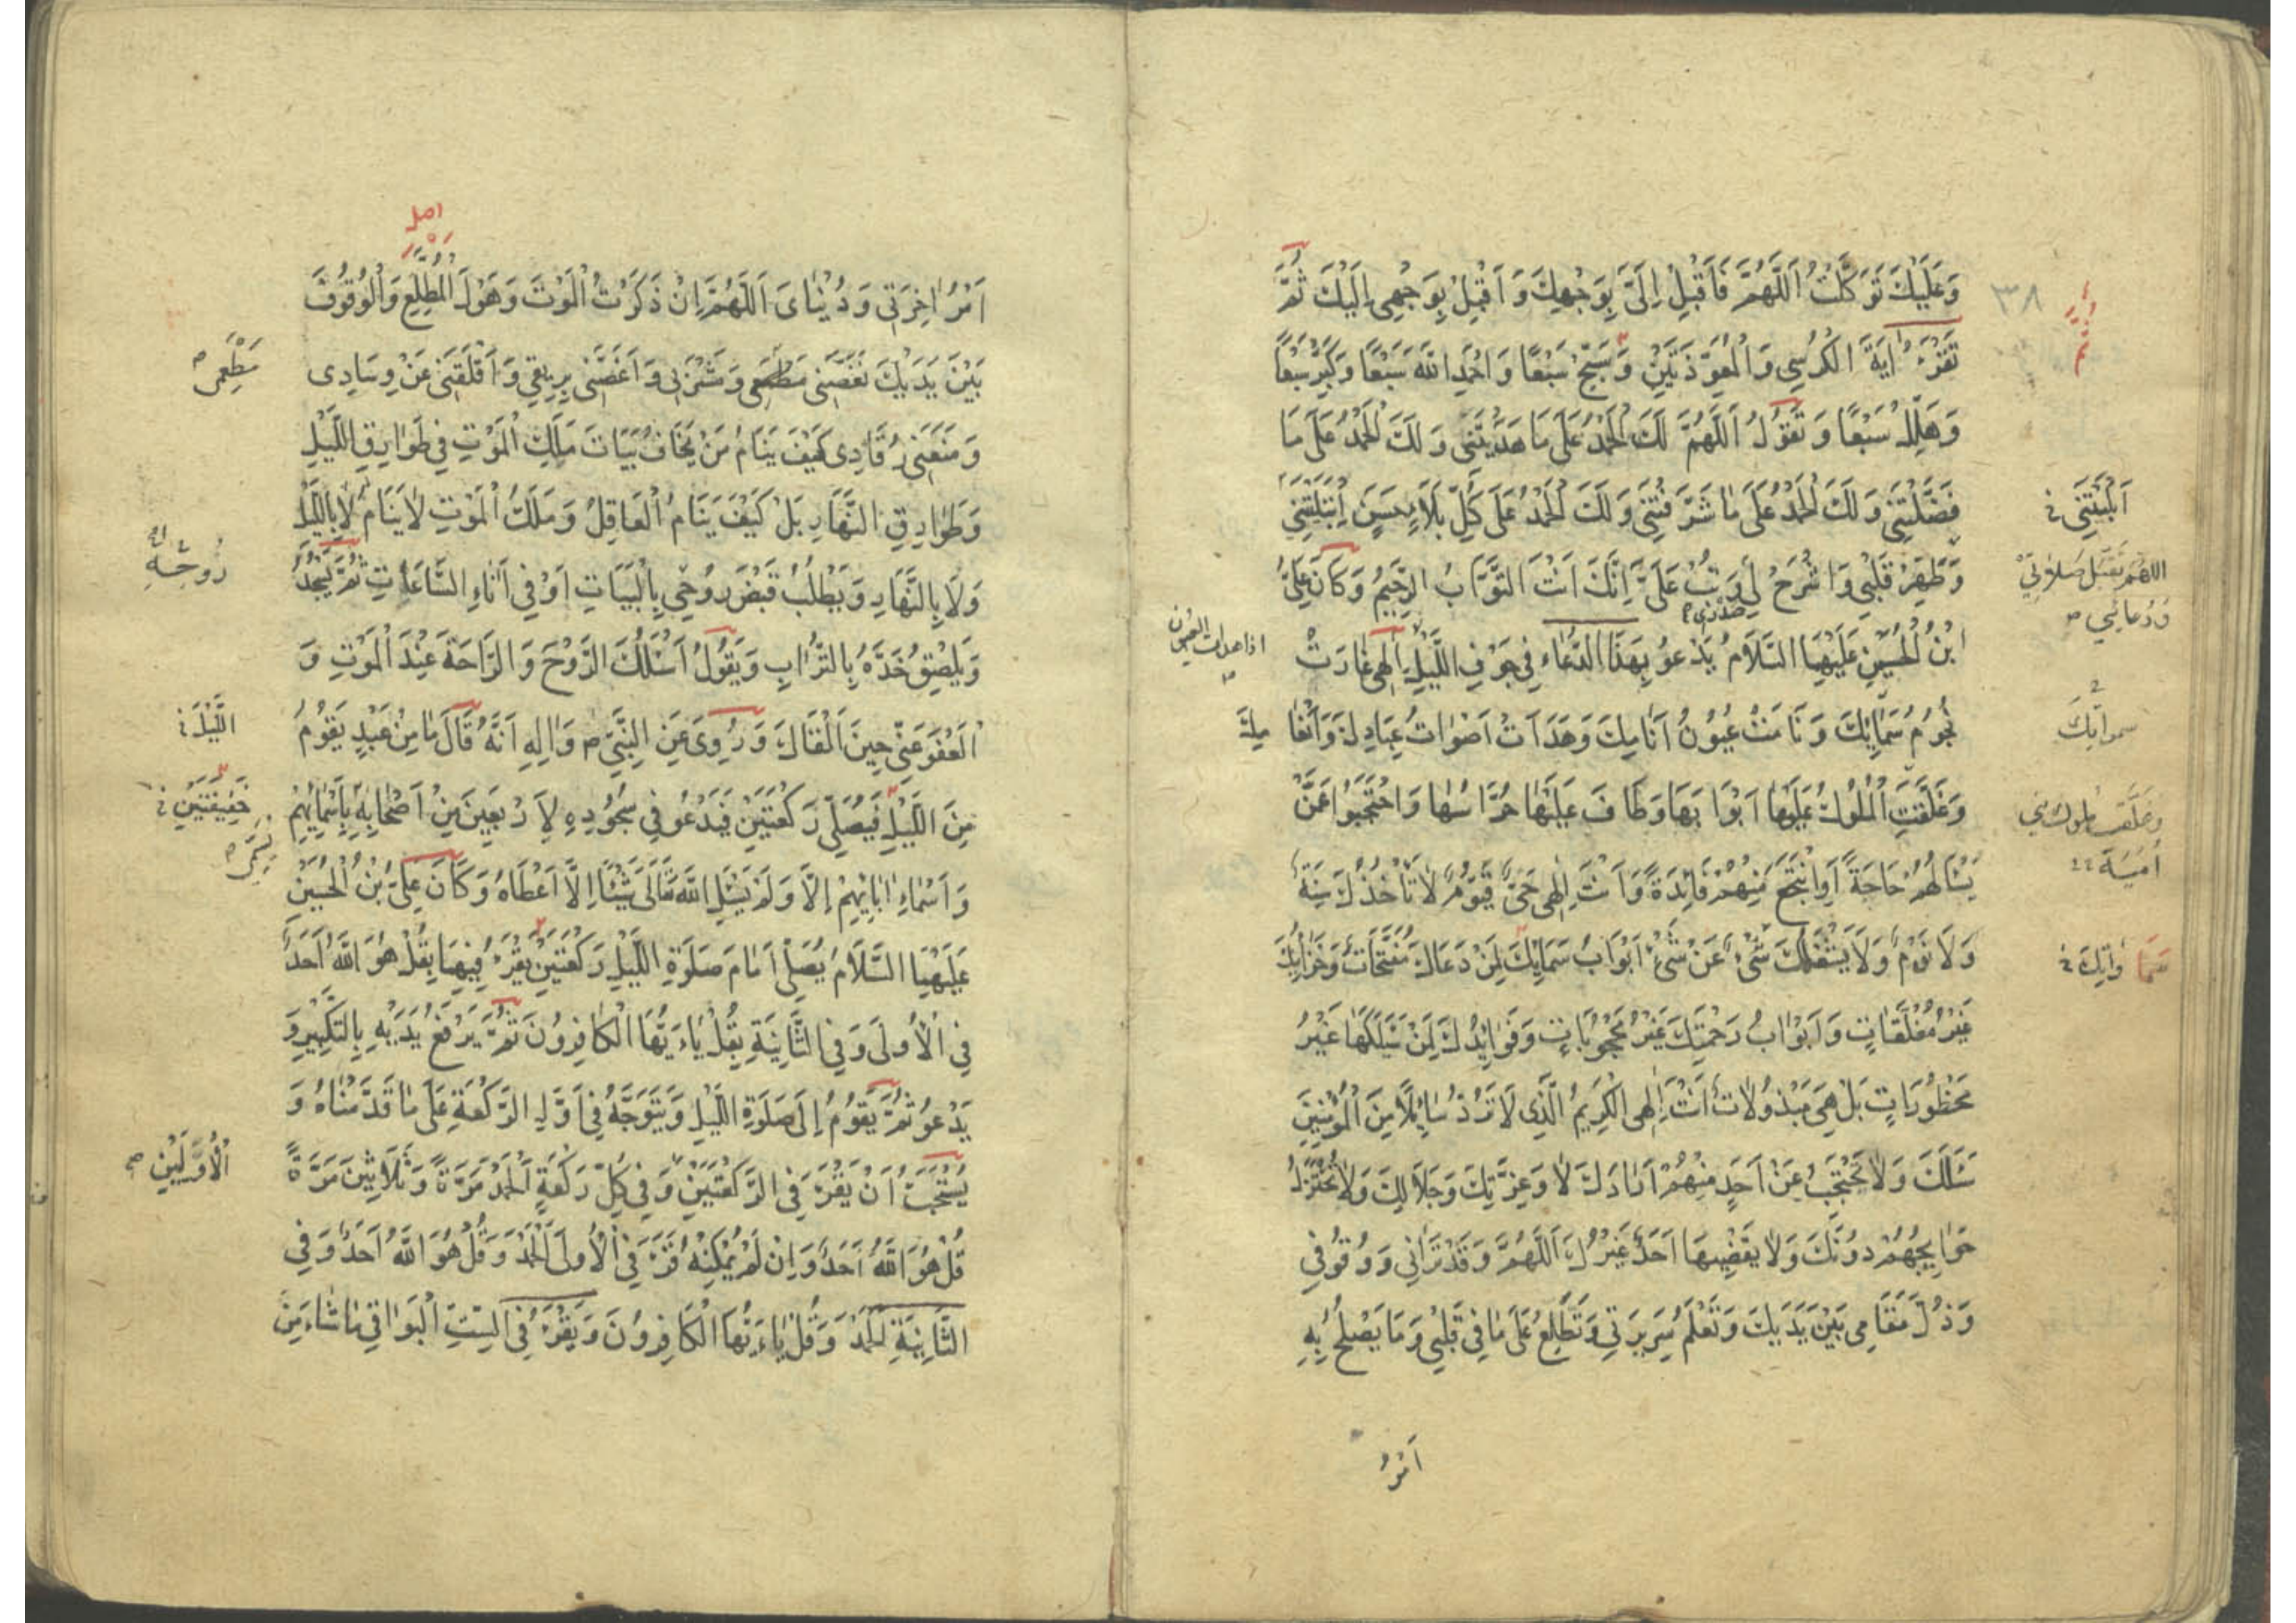 وَعَلَيْكَ تَوَكَّلْتُ اَللَّهُمَّ فَاَقْبِلْ اِلَيَّ بِوَجْهِكَ وَ اَقْبِلْ بِوَجْهِى اِلَيْكَ ثُمَّ
تَقْرَءُ ايَةَ الْكُرْسِى وَ الْمُعَوِّذَتَيْنِ وَسَبِّحْ سَبْعًا وَ احْمَدِ اللّٰهَ سَبْعًا وَكَبِّرْ سَبْعًا
وَهَلِّلْ سَبْعًا وَ تَقُولُ اَللَّهُمَّ لَكَ الْحَمْدُ عَلَى مَا هَدَيْتَنِى وَ لَكَ الْحَمْدُ عَلَى مَا
فَضَّلْتَنِى وَ لَكَ الْحَمْدُ عَلَى مَا شَرَّفْتَنِى وَ لَكَ الْحَمْدُ عَلَى كُلِّ بَلَاءٍ حَسَنٍ اِبْتَلَيْتَنِى
وَ طَهِّرْ قَلْبِى وَ اشْرَحْ لِى وَ تُبْ عَلَيَّ اِنَّكَ اَنْتَ التَّوَّابُ الرَّحِيمُ وَ كَانَ عَلِىُّ
صَدْرِى
ابْنُ الْحُسَيْنِ عَلَيْهِمَا السَّلَامُ يَدْعُو بِهَذَا الدُّعَاءِ فِى جَوْفِ اللَّيْلِ اِلٰهِى غَارَتْ
نُجُومُ سَمَائِكَ وَ نَامَتْ عُيُونُ اَنَامِكَ وَ هَدَاَتْ اَصْوَاتُ عِبَادِكَ وَ اَنْعَا مِكَ
وَ غَلَّقَتِ الْمُلُوكُ عَلَيْهَا اَبْوَابَهَا وَ طَافَ عَلَيْهَا حُرَّاسُهَا وَ احْتَجَبُوا عَمَّنْ
يَسْاَلُهُمْ حَاجَةً اَوِ انْتَجَعَ مِنْهُمْ فَائِدَةً وَ اَنْتَ اِلٰهِى حَىٌّ قَيُّومٌ لَا تَاْخُذُكَ سِنَةٌ
وَ لَا نَوْمٌ وَ لَا يَشْغَلُكَ شَىْءٌ عَنْ شَىْءٍ اَبْوَابُ سَمَائِكَ لِمَنْ دَعَاكَ مُفَتَّحَاتٌ وَ خَزَائِنُكَ
غَيْرُ مُغْلَقَاتٍ وَ اَبْوَابُ رَحْمَتِكَ غَيْرُ مَحْجُوبَاتٍ وَ فَوَائِدُكَ لِمَنْ سَئَلَكَهَا غَيْرُ
مَحْظُورَاتٍ بَلْ هِىَ مَبْذُولَاتٌ اَنْتَ اِلٰهِى الْكَرِيمُ الَّذِى لَا تَرُدُّ سَائِلًا مِنَ الْمُؤْمِنِينَ
سَئَلَكَ وَ لَا تَحْتَجِبُ عَنْ اَحَدٍ مِنْهُمْ اَرَادَكَ لَا وَ عِزَّتِكَ وَ جَلَالِكَ وَ لَا تُخْتَزَلُ
حَوَائِجُهُمْ دُونَكَ وَ لَا يَقْضِيهَا اَحَدٌ غَيْرُكَ اَللَّهُمَّ وَ قَدْ تَرَانِى وَ وُقُوفِى
وَ ذُلَّ مَقَامِى بَيْنَ يَدَيْكَ وَ تَعْلَمُ سَرِيرَتِى وَ تَطَّلِعُ عَلَى مَا فِى قَلْبِى وَ مَا يَصْلُحُ بِهِ
اَمْرُ
٣٨
اَبْلَيْتَنِى
اللهم تَقَبَّل صَلَاتِى
وَ دُعَائِى
سمواتِكَ
سَمَاوَاتِكَ
اَمْرُ اخِرَتِى وَ دُنْيَاىَ اَللَّهُمَّ اِنْ ذَكَرْتُ الْمَوْتَ وَ هَوْلَ الْمُطَّلَعِ وَ الْوُقُوفَ
بَيْنَ يَدَيْكَ نَغَّصَنِى مَطْعَمِى وَ مَشْرَبِى وَ اَغَصَّنِى بِرِيقِى وَ اَقْلَقَنِى عَنْ وِسَادِى
وَ مَنَعَنِى رُقَادِى كَيْفَ يَنَامُ مَنْ يَخَافُ بَيَاتَ مَلَكِ الْمَوْتِ فِى طَوَارِقِ اللَّيْلِ
وَ طَوَارِقِ النَّهَارِ بَلْ كَيْفَ يَنَامُ الْعَاقِلُ وَ مَلَكُ الْمَوْتِ لَا يَنَامُ لَا بِاللَّيْلِ
وَ لَا بِالنَّهَارِ وَ يَطْلُبُ قَبْضَ رُوحِى بِالْبَيَاتِ اَوْ فِى اَنَاءِ السَّاعَاتِ ثُمَّ يَسْجُدُ
وَ يُلْصِقُ خَدَّهُ بِالتُّرَابِ وَ يَقُولُ اَسْئَلُكَ الرَّوْحَ وَ الرَّاحَةَ عِنْدَ الْمَوْتِ وَ
الْعَفْوَ عَنِّى حِينَ اَلْقَاكَ وَ رُوِىَ عَنِ النَّبِىِّ ص وَ الِهِ اَنَّهُ قَالَ مَا مِنْ عَبْدٍ يَقُومُ
مِنَ اللَّيْلِ فَيُصَلِّى رَكْعَتَيْنِ فَيَدْعُو فِى سُجُودِهِ لِاَرْبَعِينَ مِنْ اَصْحَابِهِ بِاَسْمَائِهِمْ
وَ اَسْمَاءِ ابَائِهِمْ اِلَّا وَ لَمْ يَسْئَلِ اللّٰهَ تَعَالَى شَيْئًا اِلَّا اَعْطَاهُ وَ كَانَ عَلِىُّ بْنُ الْحُسَيْنِ
عَلَيْهِمَا السَّلَامُ يُصَلِّى اَمَامَ صَلَوةِ اللَّيْلِ رَكْعَتَيْنِ يَقْرَءُ فِيهِمَا بِقُلْ هُوَ اللّٰهُ اَحَدٌ
فِى الْاُولَى وَ فِى الثَّانِيَةِ بِقُلْ يَاءَيُّهَا الْكَافِرُونَ ثُمَّ يَرْفَعُ يَدَيْهِ بِالتَّكْبِيرِ وَ
يَدْعُو ثُمَّ يَقُومُ اِلَى صَلَوةِ اللَّيْلِ وَ يَتَوَجَّهُ فِى اَوَّلِ الرَّكْعَةِ عَلَى مَا قَدَّمْنَاهُ وَ
يُسْتَحَبُّ اَنْ يَقْرَءَ فِى الرَّكْعَتَيْنِ وَ فِى كُلِّ رَكْعَةٍ اَلْحَمْدَ مَرَّةً وَ ثَلَاثِينَ مَرَّةً
قُلْ هُوَ اللّٰهُ اَحَدٌ وَ اِنْ لَمْ يُمْكِنْهُ قَرَءَ فِى الْاُولَى اَلْحَمْدَ وَ قُلْ هُوَ اللّٰهُ اَحَدٌ وَ فِى
الثَّانِيَةِ الْحَمْدَ وَ قُلْ يَاءَيُّهَا الْكَافِرُونَ وَ يَقْرَءُ فِى السِّتِّ الْبَوَاقِى مَا شَاءَ مِنَ
مَطْعَمِى
رُوحِهِ
اللَّيْلَ
خَفِيفَتَيْنِ
الْاُوَّلَيْنِ